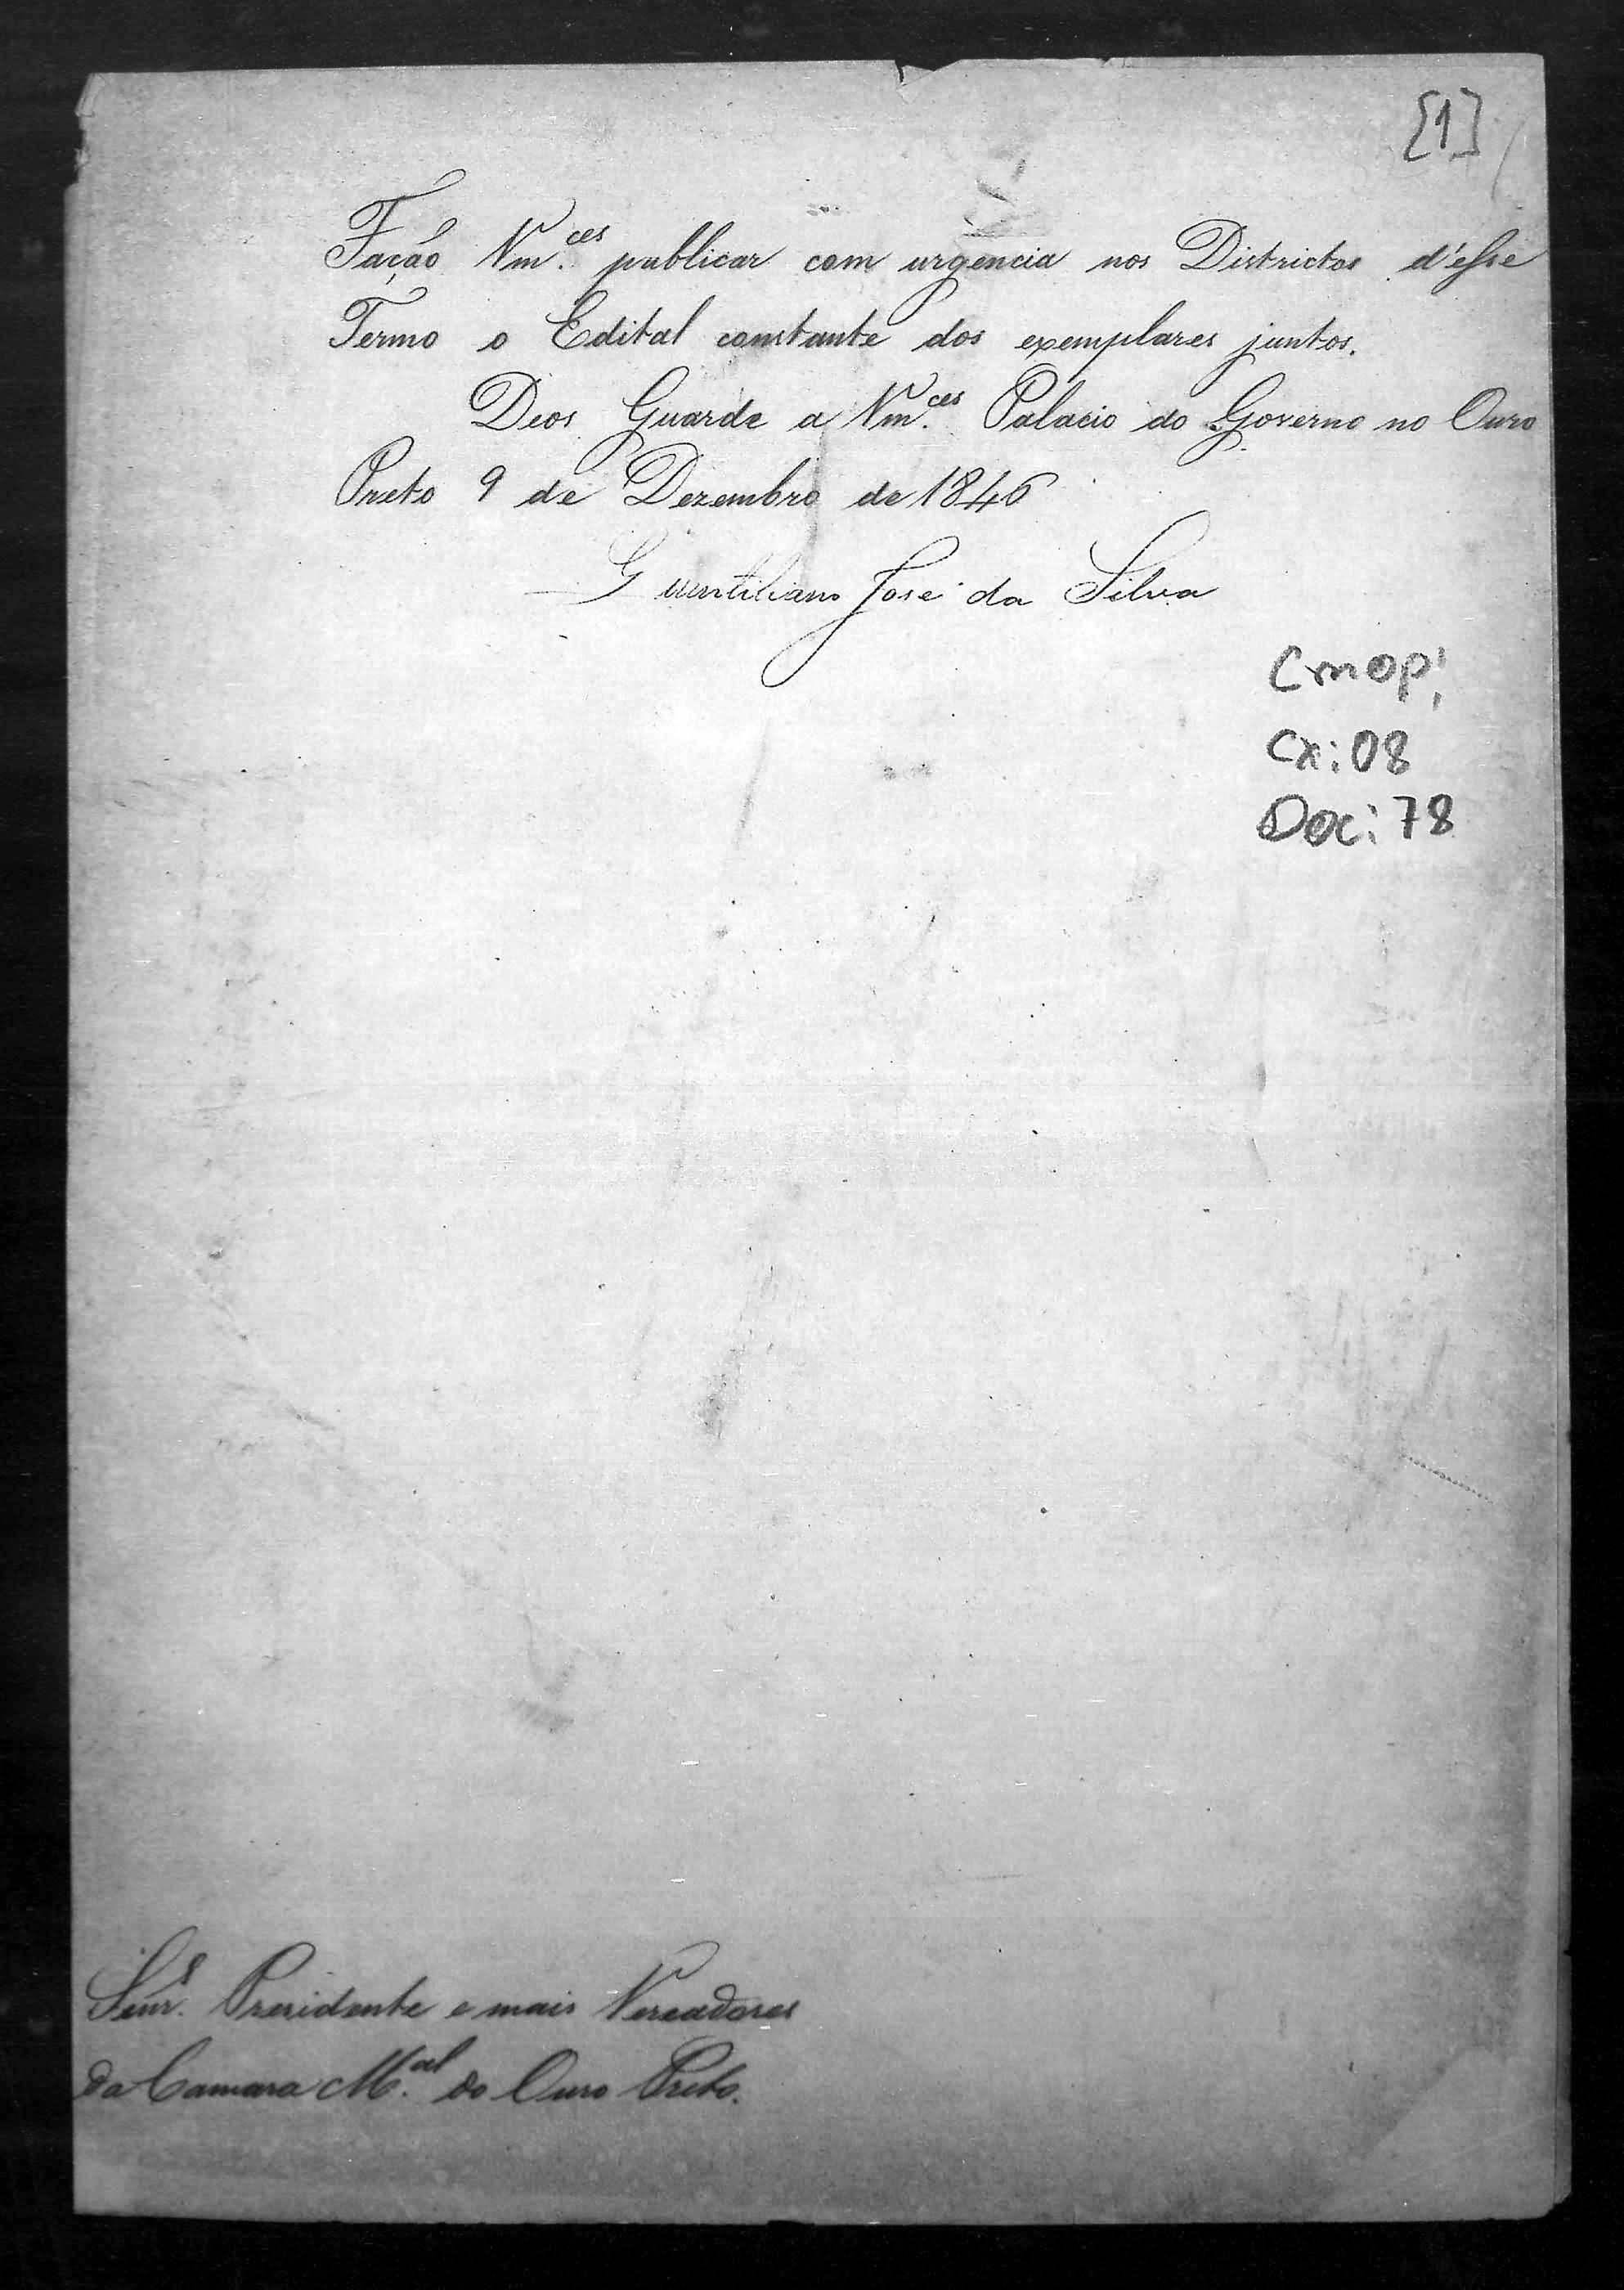 [1]
Fação Vm.ces publicar com urgencia nos Districtos d'esse
Termo o Edital constante dos exemplares juntos.
Deos Guarde a Vm.ces Palacio do Governo no Ouro
Preto 9 de Dezembro de 1846
Quintiliano José da Silva
Cmop:
Cx: 08
Doc: 78
Senr.s Presidente e mais Vereadores
da Camara M.al do Ouro Preto.